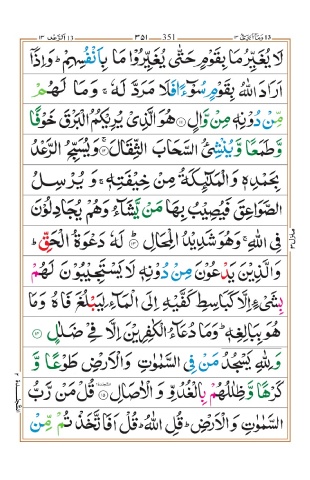 وَمَآ اُبَرِّئُ ١٣ ٣٥١ 351 اَلرَّعْد ١٣
لَا یُغَیِّرُ مَا بِقَوْمٍ حَتّٰی یُغَیِّرُوْا مَا بِاَنْفُسِهِمْ ؕ وَاِذَاۤ
اَرَادَ اللّٰهُ بِقَوْمٍ سُوْٓءًا فَلَا مَرَدَّ لَهٗ ۚ وَمَا لَهُمْ
مِّنْ دُوْنِهٖ مِنْ وَّالٍ ۝۱۱ هُوَ الَّذِیْ یُرِیْكُمُ الْبَرْقَ خَوْفًا
وَّطَمَعًا وَّیُنْشِئُ السَّحَابَ الثِّقَالَ ۝۱۲ وَیُسَبِّحُ الرَّعْدُ
بِحَمْدِهٖ وَالْمَلٰٓىِٕكَةُ مِنْ خِیْفَتِهٖ ۚ وَیُرْسِلُ
الصَّوَاعِقَ فَیُصِیْبُ بِهَا مَنْ یَّشَآءُ وَهُمْ یُجَادِلُوْنَ
فِی اللّٰهِ ۚ وَهُوَ شَدِیْدُ الْمِحَالِ ۝۱۳ لَهٗ دَعْوَةُ الْحَقِّ ؕ
وَالَّذِیْنَ یَدْعُوْنَ مِنْ دُوْنِهٖ لَا یَسْتَجِیْبُوْنَ لَهُمْ
بِشَیْءٍ اِلَّا كَبَاسِطِ كَفَّیْهِ اِلَی الْمَآءِ لِیَبْلُغَ فَاهُ وَمَا
هُوَ بِبَالِغِهٖ ؕ وَمَا دُعَآءُ الْكٰفِرِیْنَ اِلَّا فِیْ ضَلٰلٍ ۝۱۴
وَلِلّٰهِ یَسْجُدُ مَنْ فِی السَّمٰوٰتِ وَالْاَرْضِ طَوْعًا وَّ
كَرْهًا وَّظِلٰلُهُمْ بِالْغُدُوِّ وَالْاٰصَالِ ۝۱۵ قُلْ مَنْ رَّبُّ
السَّمٰوٰتِ وَالْاَرْضِ ؕ قُلِ اللّٰهُ ؕ قُلْ اَفَاتَّخَذْتُمْ مِّنْ